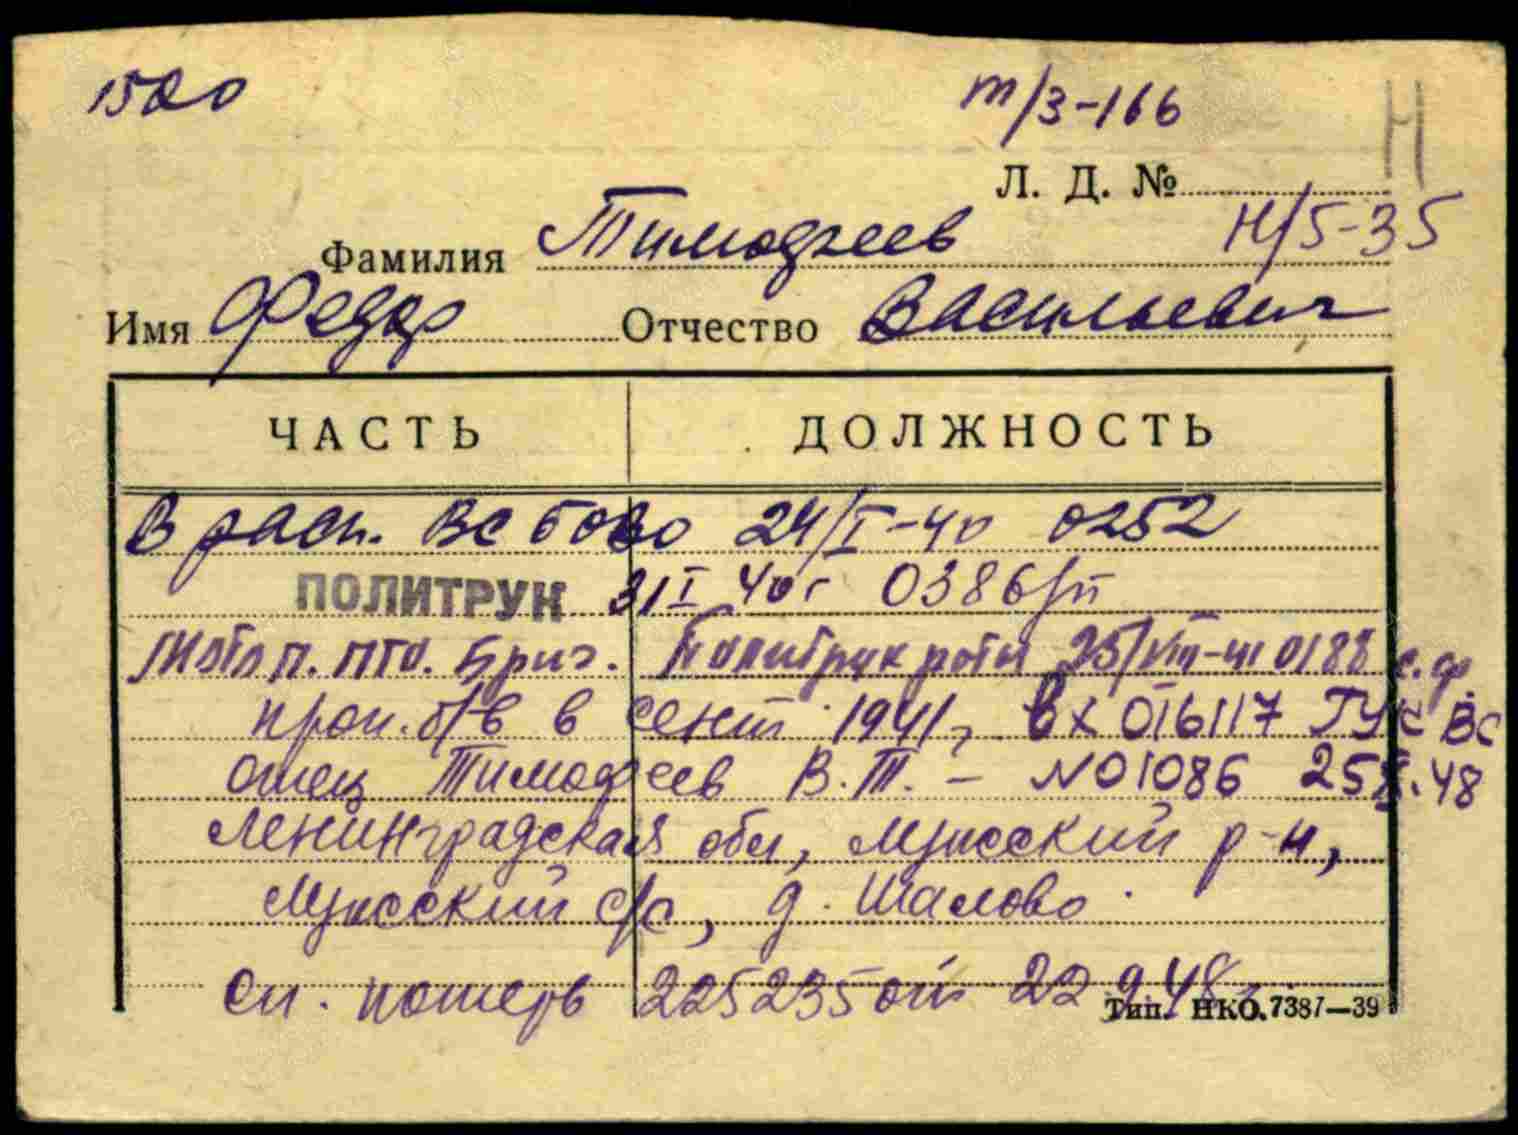 1520
т/3-166
Н
Л. Д. №
Н/5-35
Фамилия Тимофеев
Имя Федор Отчество Васильевич
ЧАСТЬ ДОЛЖНОСТЬ
В расп. ВС БОВО 24/I-40 0252
ПОЛИТРУК 31 I 40 г 0386/п
п. ПТО. Бриг. Политрук роты 25/VIII-41 0188 с.ф.
проп. б/в в сент 1941 г. вх 016117 ГУК ВС
отец Тимофеев В.Т. - №01086 48
Ленинградская обл, р-н,
с/с, д. Шалово
сп. потерь 225235 от 22 9 48
Тип. НКО. 7387—39